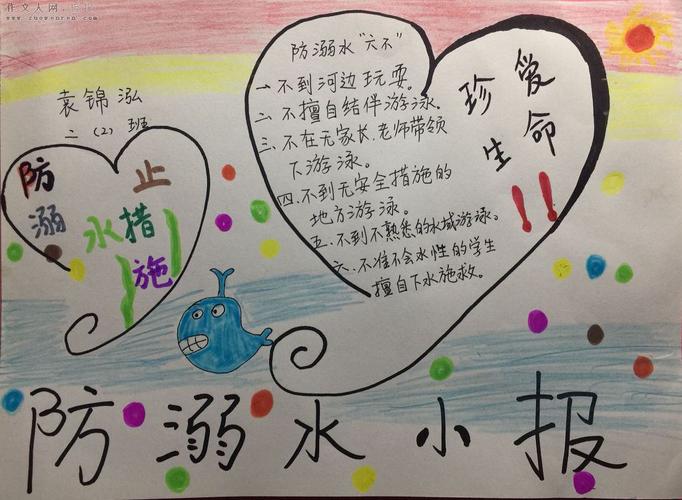 作文人网
www.zuowenren.com
袁锦泓
二（2）班
防止
溺水措施
防溺水“六不”
一、不到河边玩耍。
二、不擅自结伴游泳。
三、不在无家长、老师带领
下游泳。
四、不到无安全措施的
地方游泳。
五、不到不熟悉的水域游泳。
六、不准不会水性的学生
擅自下水施救。
珍爱
生命!!
防溺水小报